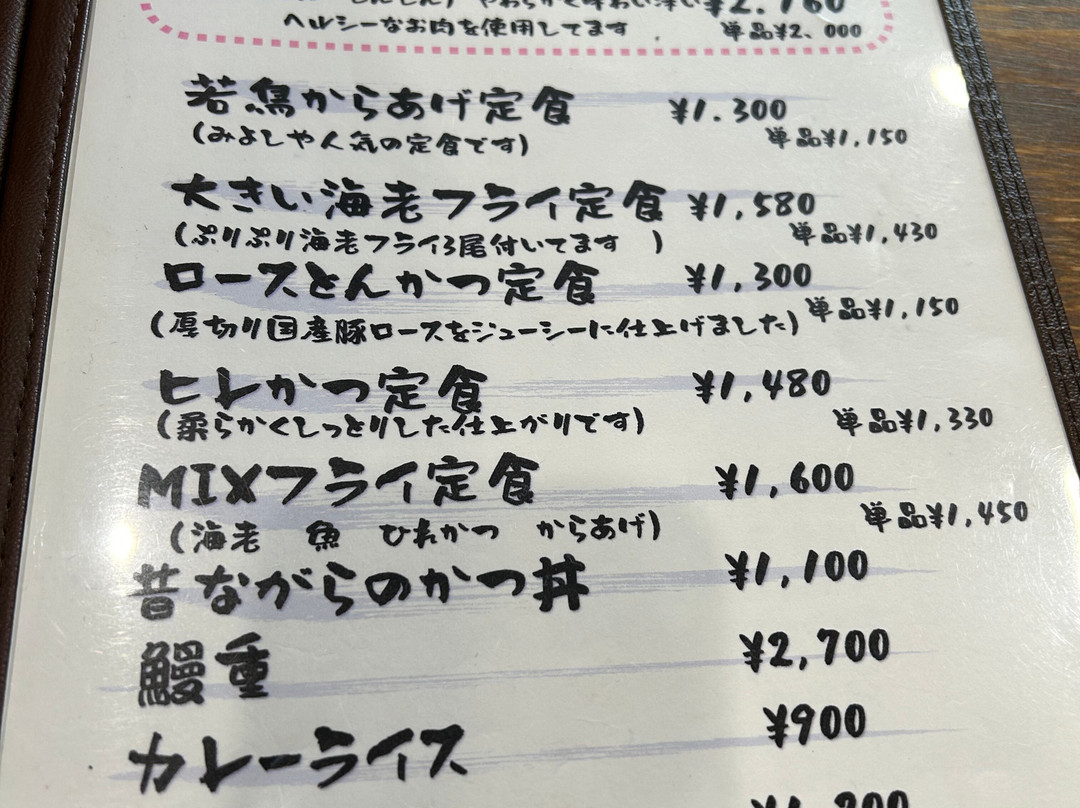 やわらかく味わい深い ¥2.160
ヘルシーなお肉を使用してます 単品¥2、000
若鳥からあげ定食 ¥1.300
(みよしや人気の定食です) 単品¥1,150
大きい海老フライ定食 ¥1,580
(ぷりぷり海老フライ3尾付いてます ) 単品¥1,430
ロースとんかつ定食 ¥1,300
(厚切り国産豚ロースをジューシーに仕上げました) 単品¥1,150
ヒレかつ定食 ¥1,480
(柔らかくしっとりした仕上がりです) 単品¥1,330
MIXフライ定食 ¥1,600
(海老 魚 ひれかつ からあげ) 単品¥1,450
昔ながらのかつ丼 ¥1,100
鰻重 ¥2,700
カレーライス ¥900